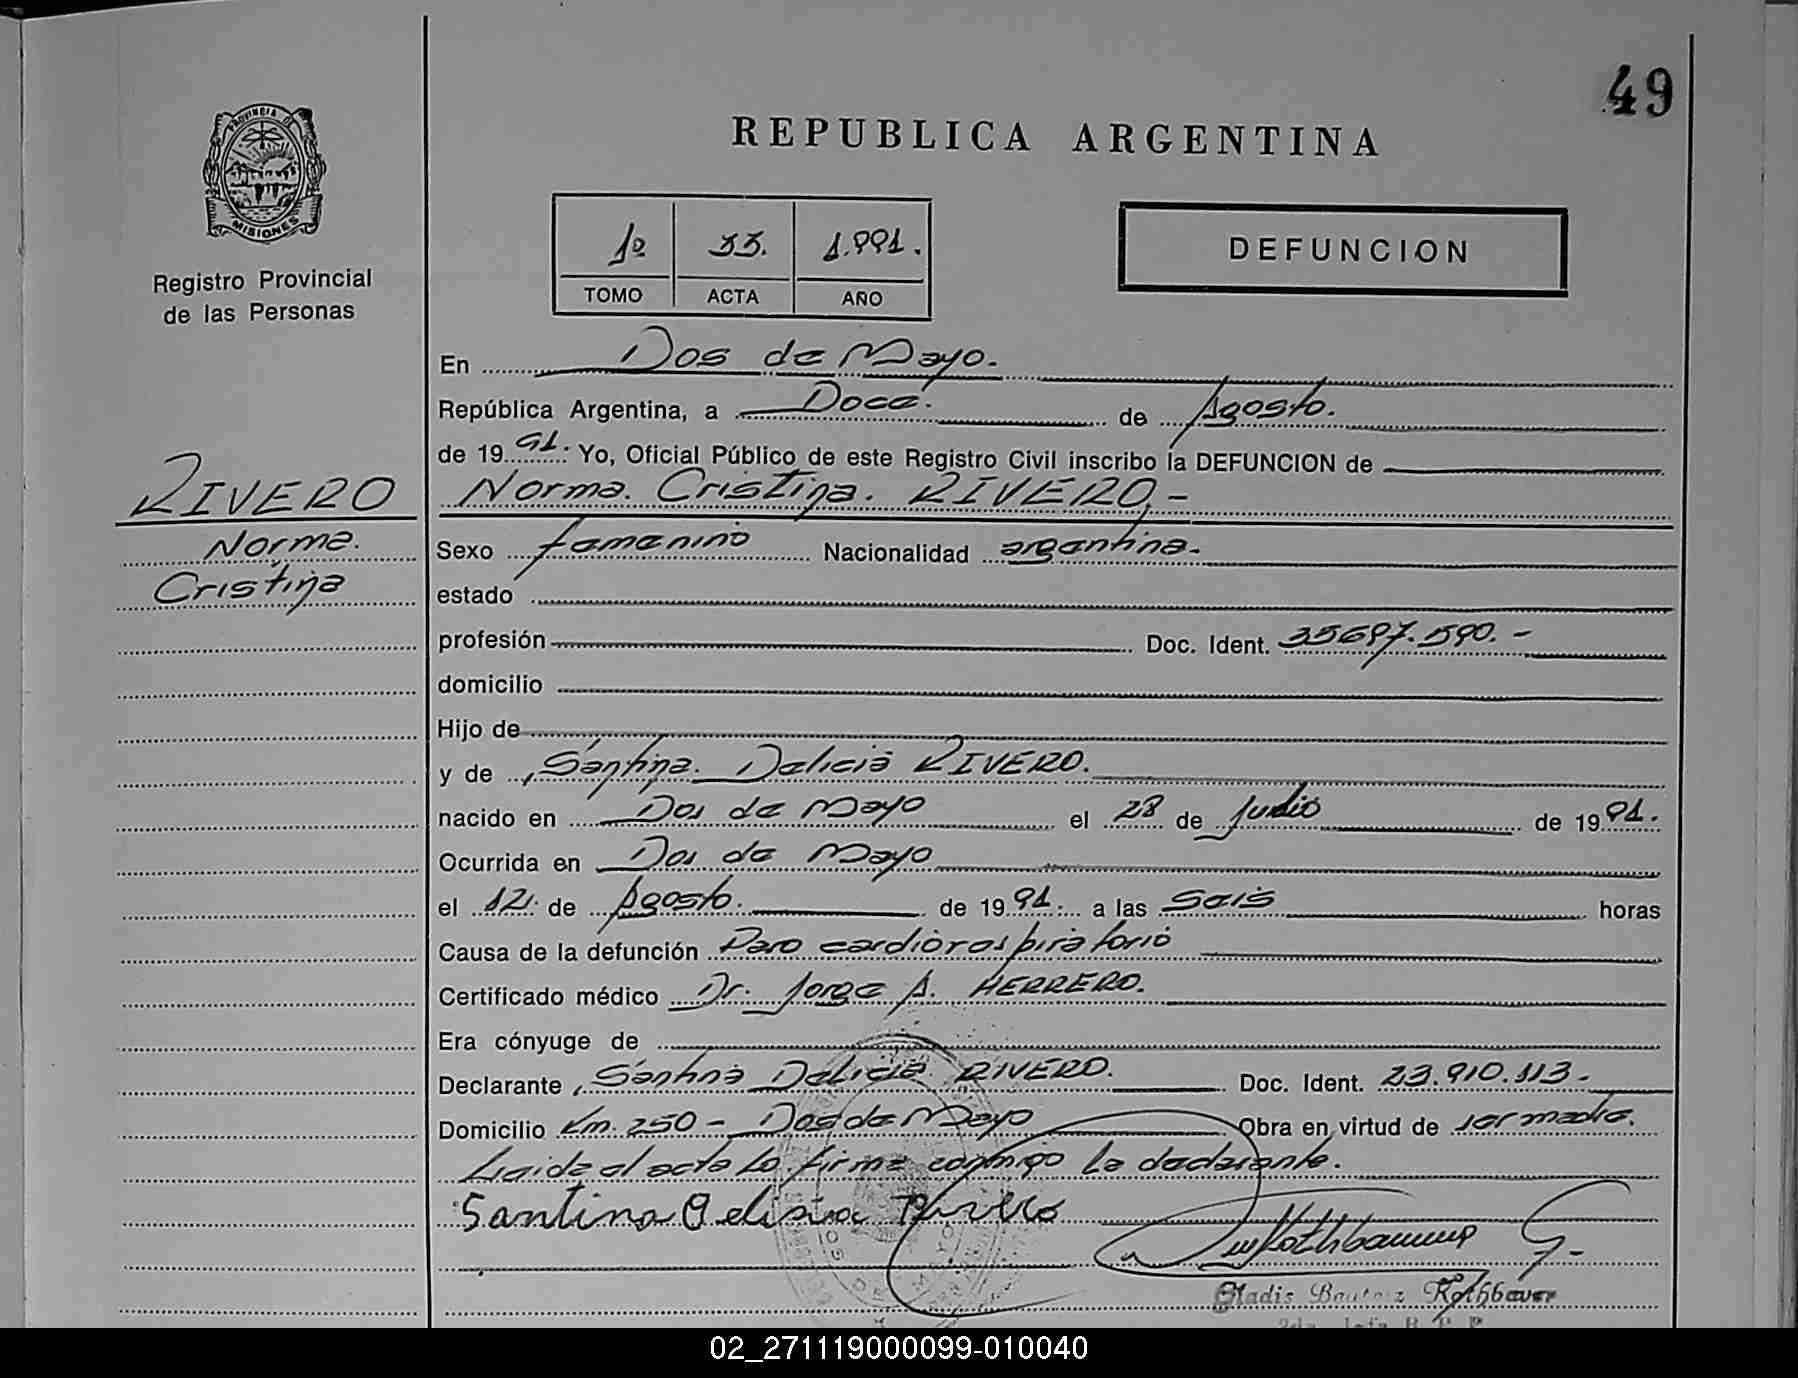 49
REPUBLICA ARGENTINA
PROVINCIA D
MISIONES
Registro Provincial
de las Personas
1º 33. 1.991.
TOMO ACTA AÑO
DEFUNCION
En Dos de Mayo.
República Argentina, a Doce. de Agosto.
de 1991. Yo, Oficial Público de este Registro Civil inscribo la DEFUNCION de
RIVERO
Norma.
Cristina
Norma. Cristina. RIVERO.-
Sexo femenino Nacionalidad argentina.
estado
profesión Doc. Ident. 35697.590.-
domicilio
Hijo de
y de Santina. Delicia RIVERO.
nacido en Dos de Mayo el 28 de Junio de 1991.
Ocurrida en Dos de Mayo
el 12. de Agosto. de 1991. a las Seis horas
Causa de la defunción Paro cardiorespiratorio
Certificado médico Dr. Jorge A. HERRERO.
Era cónyuge de
Declarante Santina Delicia RIVERO. Doc. Ident. 23.910.113.-
Domicilio Km. 250 - Dos de Mayo Obra en virtud de ser madre.
Leida el acta la firma conmigo la declarante.
Santina Delisia
Gladis Rothbauer
02_271119000099-010040